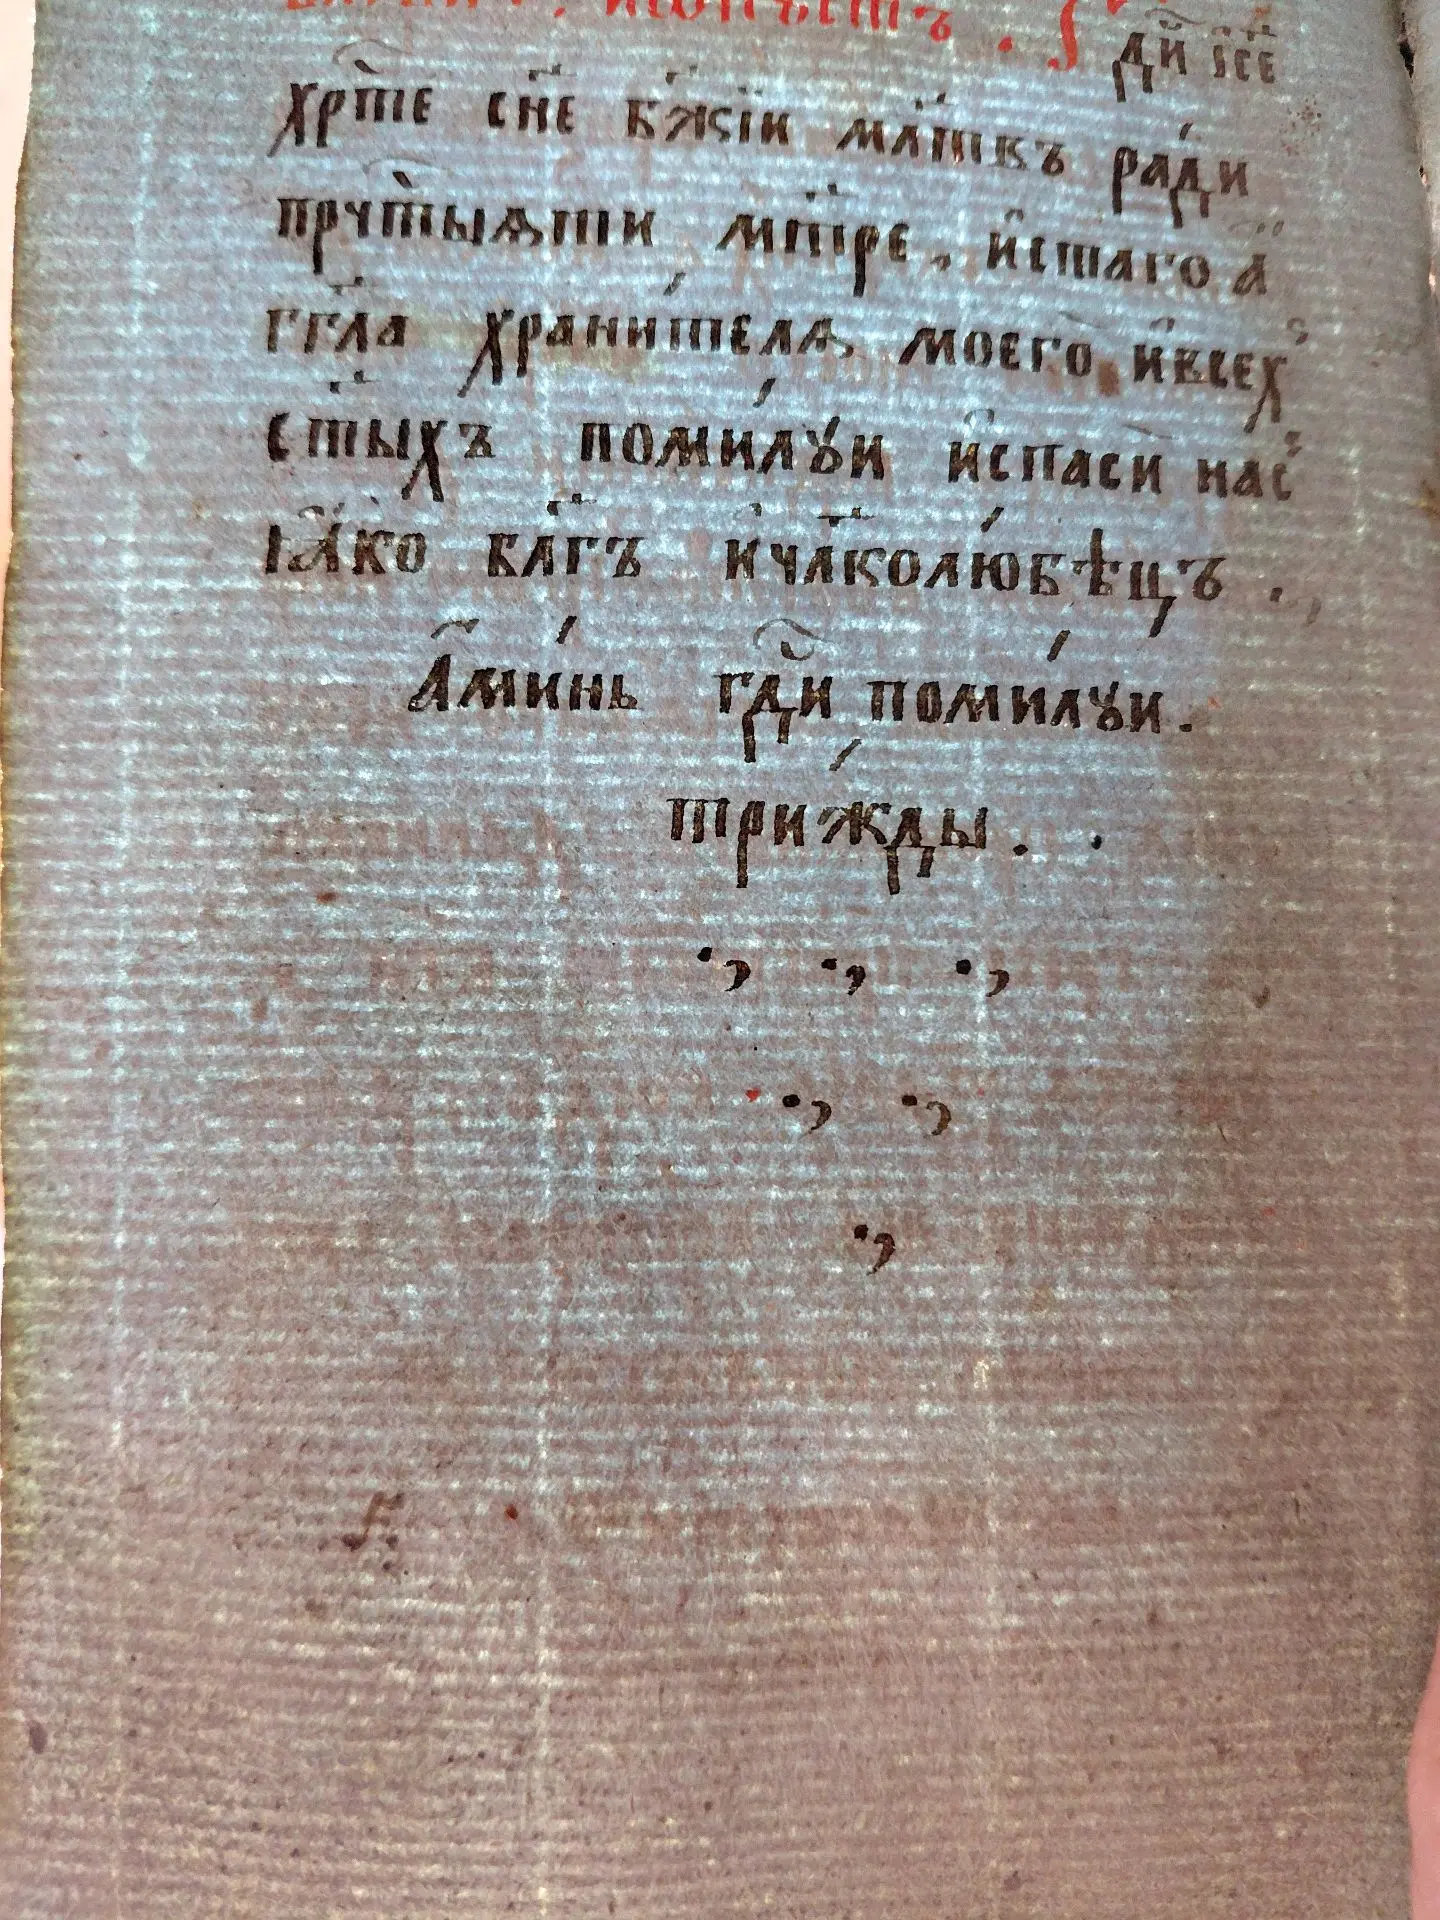 и҆ѿпꙋстъ .
ди҃ і҆се҃
хрⷭ҇те сн҃е бж҃їи мл҃твъ ра́ди
прчⷭ҇тыѧти мт҃ре , и҆ст҃аго а҆
гг҃ла храни́телѧ моего и҆всех
ст҃ыхъ поми́лꙋи и҆спаси нас
ꙗ҆ко бл҃гъ и҆чл҃колю́бѣцъ .,
А҆ми́нь гдⷭ҇и поми́лꙋи .
три́жды . .
., ., .,
., .,
.,